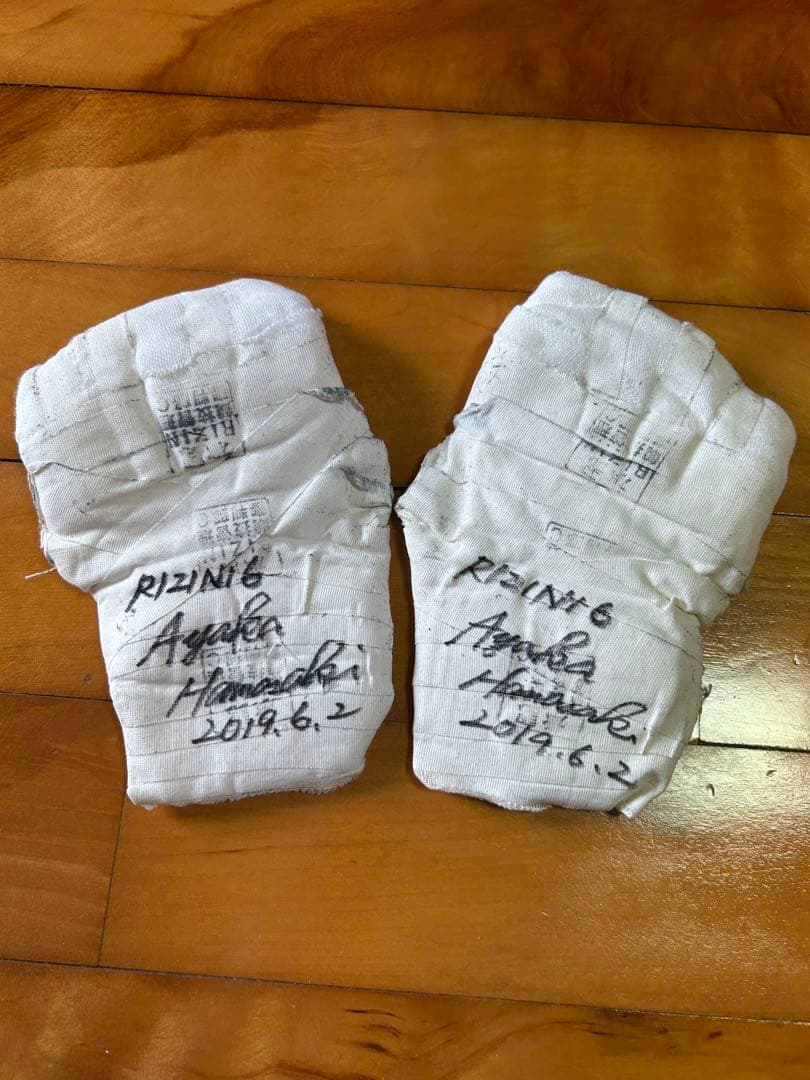 RIZIN
RIZIN16
Ayaka
Hamasaki
2019.6.2
RIZIN
RIZIN16
Ayaka
Hamasaki
2019.6.2